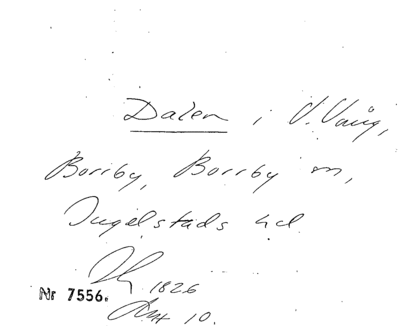 Dalen i V. Vång,
Borrby, Borrby sn,
Ingelstads hd
1826
Nr 7556.
Akt 10.